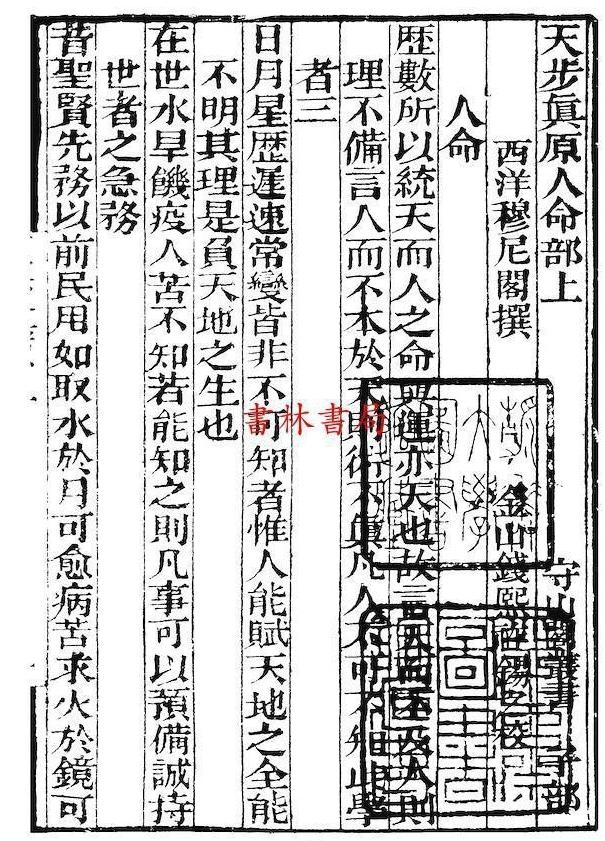 天步眞原人命部上　守山閣叢書　子部
西洋穆尼閣撰　金山錢熙祚錫之校
人命
歷數所以統天而人之命與運亦天也故言天而不及人則
理不備言人而不本於天則術不眞凡人不可不知此學
者三
日月星歷遲速常變皆非不可知者惟人能賦天地之全能
不明其理是負天地之生也
在世水旱饑疫人苦不知若能知之則凡事可以預備誠持
世者之急務
昔聖賢先務以前民用如取水於月可愈病苦求火於鏡可
書林書局